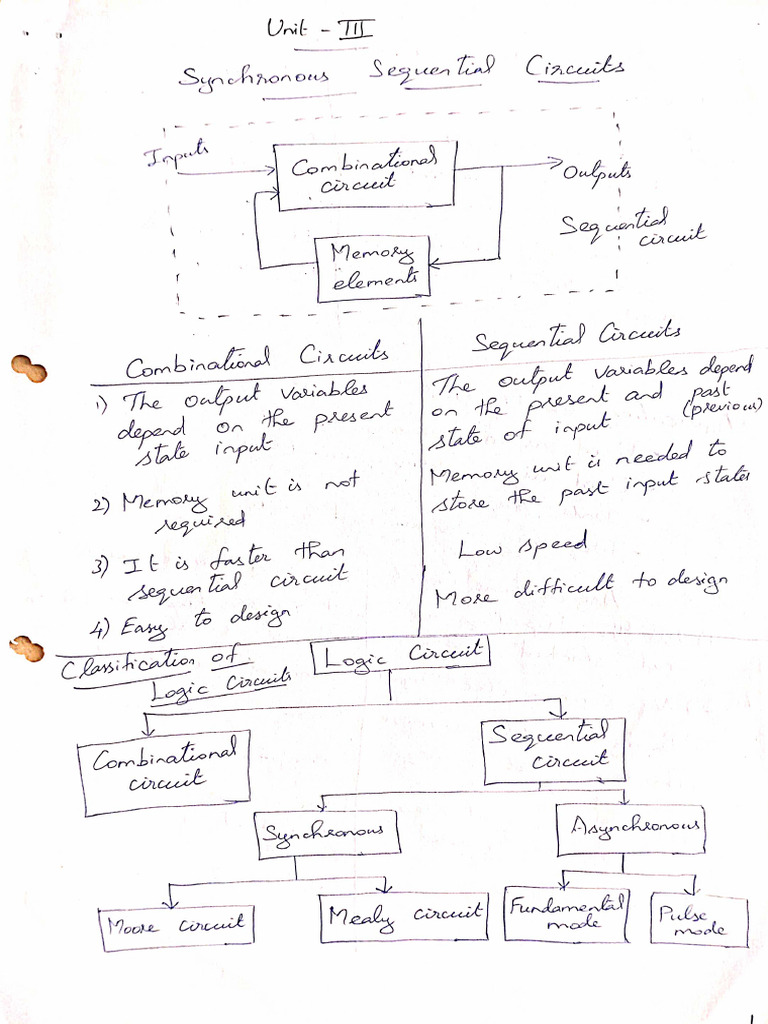 Unit - III
Synchronous Sequential Circuits
Inputs
Combinational
circuit
Outputs
Sequential
circuit
Memory
elements
Combinational Circuits
1) The output variables
depend on the present
state input
2) Memory unit is not
required
3) It is faster than
sequential circuit
4) Easy to design
Sequential Circuits
The output variables depend
on the present and past
(previous)
state of input
Memory unit is needed to
store the past input states
Low speed
More difficult to design
Classification of
Logic Circuits
Logic Circuit
Combinational
circuit
Sequential
circuit
Synchronous
Asynchronous
Moore circuit
Mealy circuit
Fundamental
mode
Pulse
mode